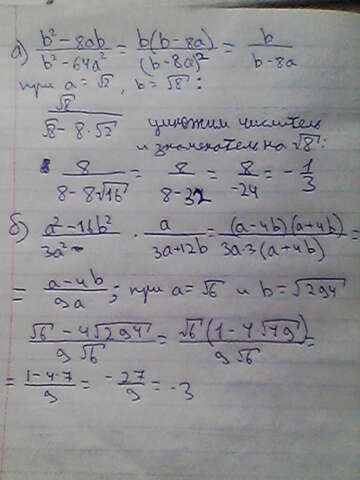 а) (b² - 8ab)/(b² - 64a²) = b(b - 8a)/(b - 8a)² = b/(b - 8a)
при a = √2, b = √8:
√8/(√8 - 8·√2) умножим числитель
и знаменатель на √8:
8/(8 - 8√16) = 8/(8 - 32) = 8/(-24) = -1/3
б) (a² - 16b²)/3a² · a/(3a + 12b) = (a - 4b)(a + 4b)/(3a·3(a + 4b)) =
= (a - 4b)/9a; при a = √6 и b = √294
(√6 - 4√294)/(9√6) = √6(1 - 4√49)/(9√6) =
= (1 - 4·7)/9 = -27/9 = -3